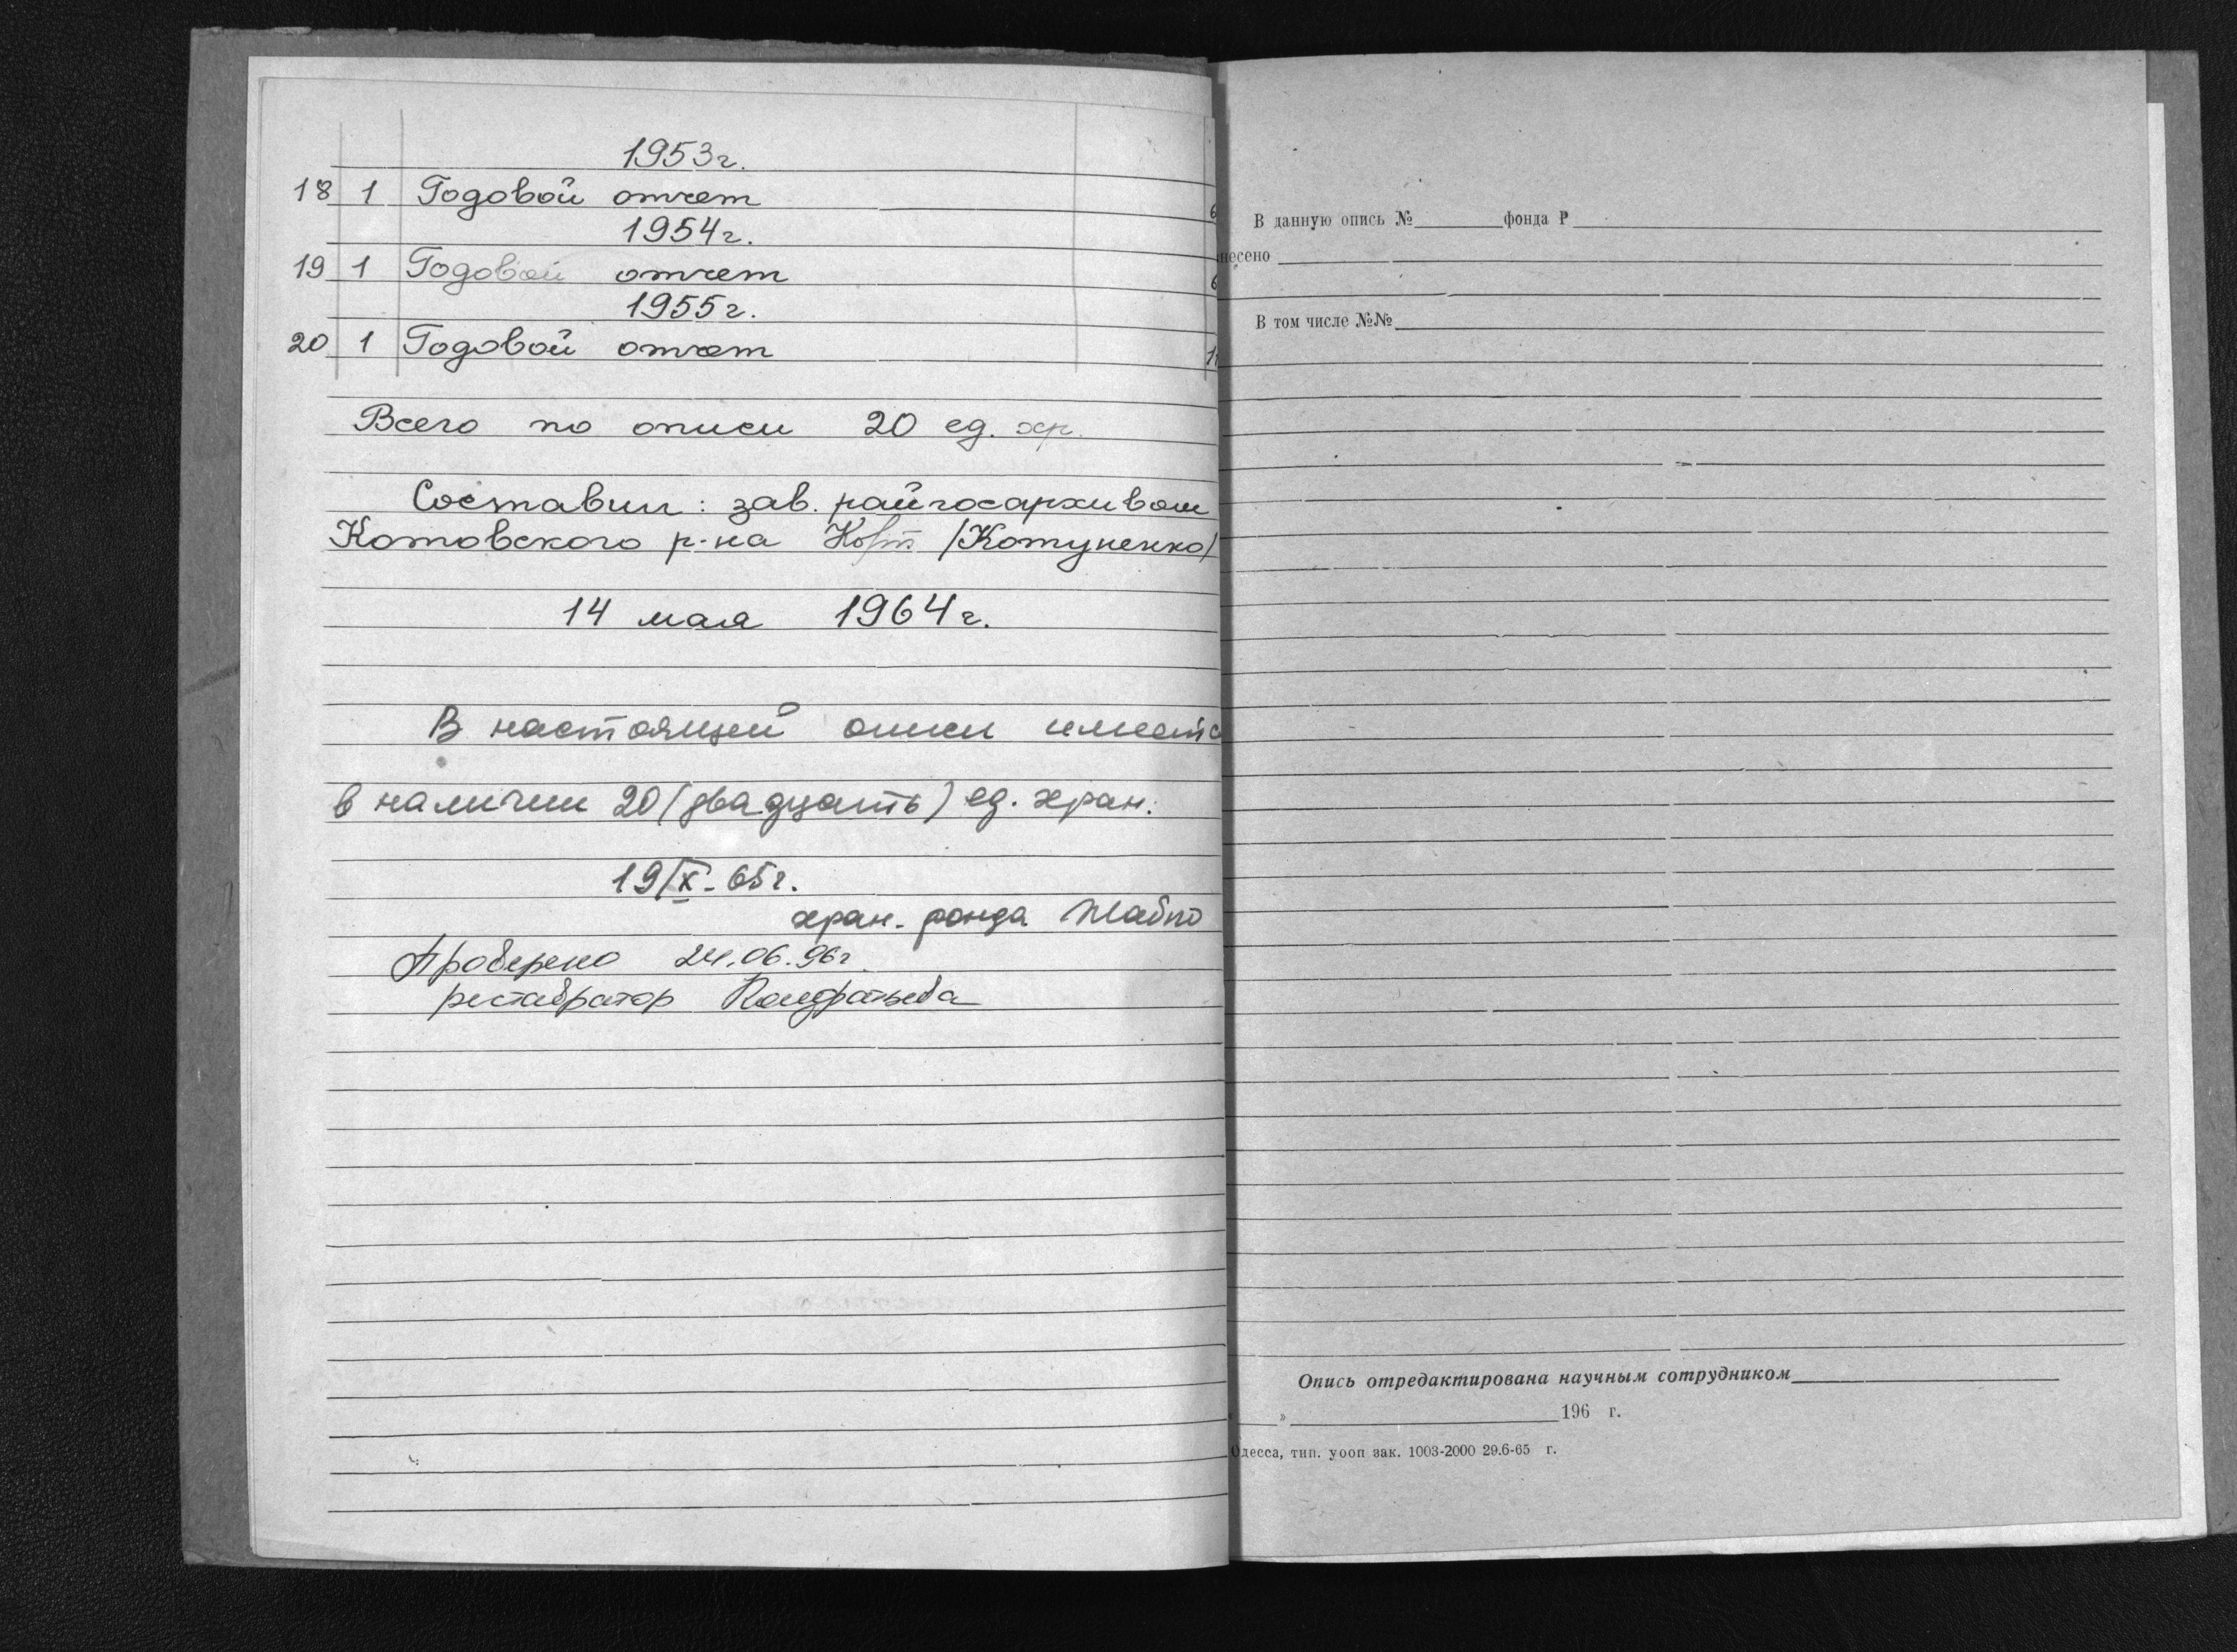 1953г.
18 1 Годовой отчет 6
1954г.
19 1 Годовой отчет 6
1955г.
20 1 Годовой отчет 1
Всего по описи 20 ед. хр.
Составил: зав. райгосархивом
Котовского р-на /Котуненко/
14 мая 1964г.
В настоящей описи имеетс
в наличии 20 (двадцать) ед. хран.
19/X-65г.
хран. фонда
Проверено 24.06.96г.
реставратор Кондратьева
В данную опись № фонда Р
несено
В том числе №№
Опись отредактирована научным сотрудником
» 196 г.
Одесса, тип. уооп зак. 1003-2000 29.6-65 г.